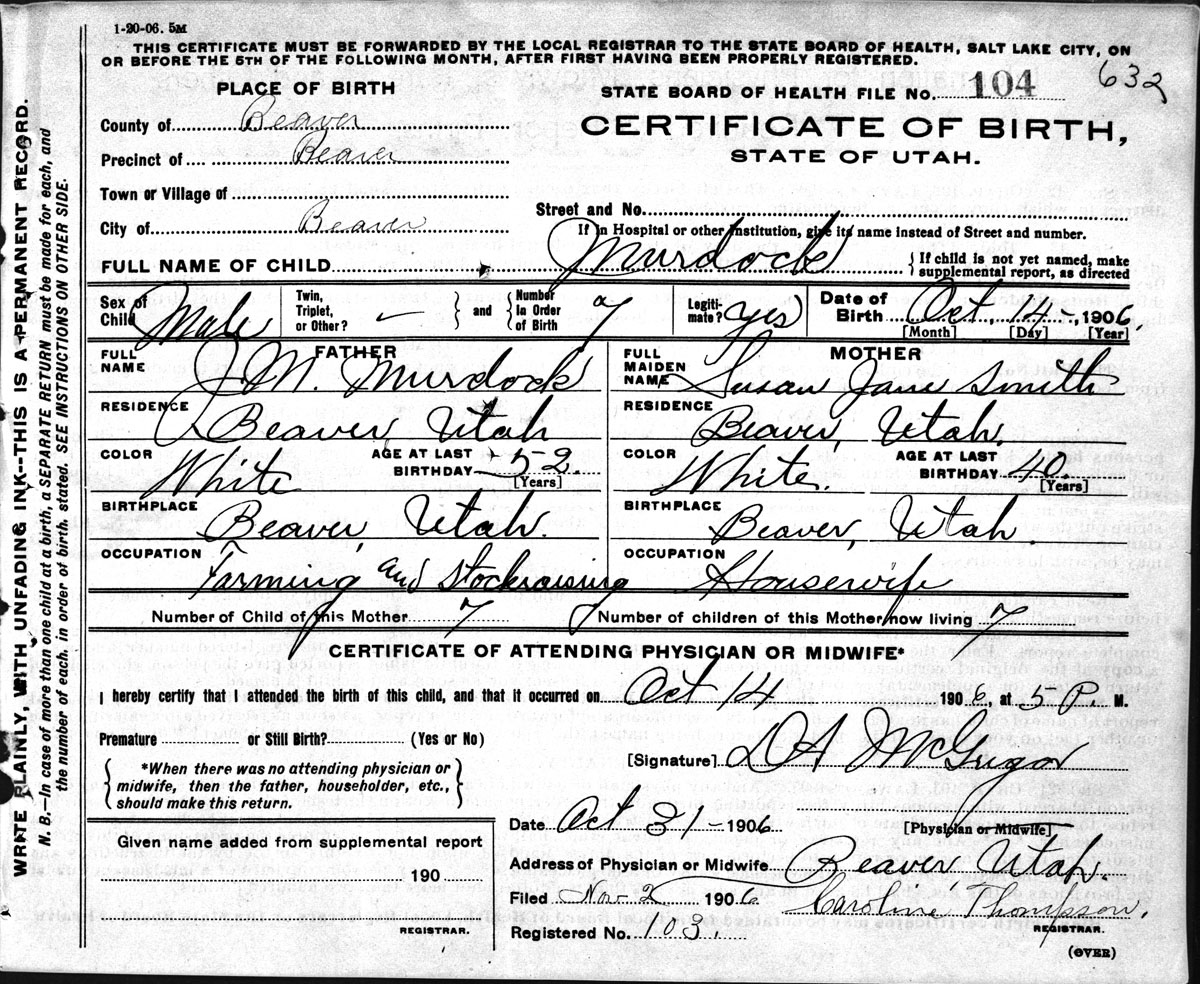 1-20-06. 5M
THIS CERTIFICATE MUST BE FORWARDED BY THE LOCAL REGISTRAR TO THE STATE BOARD OF HEALTH, SALT LAKE CITY, ON
OR BEFORE THE 5TH OF THE FOLLOWING MONTH, AFTER FIRST HAVING BEEN PROPERLY REGISTERED.
632
PLACE OF BIRTH
STATE BOARD OF HEALTH FILE No. 104
County of Beaver
CERTIFICATE OF BIRTH,
Precinct of Beaver
STATE OF UTAH.
Town or Village of
City of Beaver
Street and No.
If in Hospital or other institution, give its name instead of Street and number.
FULL NAME OF CHILD Murdock
{ If child is not yet named, make
supplemental report, as directed
Sex of Child Male
Twin, Triplet, or Other? — } and { Number In Order of Birth 7
Legitimate? yes
Date of Birth Oct, 14-, 1906.
[Month] [Day] [Year]
FATHER
FULL NAME J. M. Murdock
MOTHER
FULL MAIDEN NAME Susan Jane Smith
RESIDENCE Beaver, Utah
RESIDENCE Beaver, Utah.
COLOR White AGE AT LAST BIRTHDAY 52.
[Years]
COLOR White. AGE AT LAST BIRTHDAY 40.
[Years]
BIRTHPLACE Beaver, Utah.
BIRTHPLACE Beaver, Utah.
OCCUPATION Farming and Stockraising
OCCUPATION Housewife
Number of Child of this Mother 7
Number of children of this Mother now living 7
CERTIFICATE OF ATTENDING PHYSICIAN OR MIDWIFE*
I hereby certify that I attended the birth of this child, and that it occurred on Oct 14 1906, at 5 P. M.
Premature or Still Birth? (Yes or No)
{ *When there was no attending physician or
midwife, then the father, householder, etc.,
should make this return. }
[Signature] D A McGregor
[Physician or Midwife]
Date Oct 31-1906
Given name added from supplemental report
190
REGISTRAR.
Address of Physician or Midwife Beaver, Utah.
Filed Nov-2 1906 Caroline Thompson.
REGISTRAR.
Registered No. 103.
(OVER)
WRITE PLAINLY, WITH UNFADING INK--THIS IS A PERMANENT RECORD.
N. B.—In case of more than one child at a birth, a SEPARATE RETURN must be made for each, and
the number of each, in order of birth, stated. SEE INSTRUCTIONS ON OTHER SIDE.